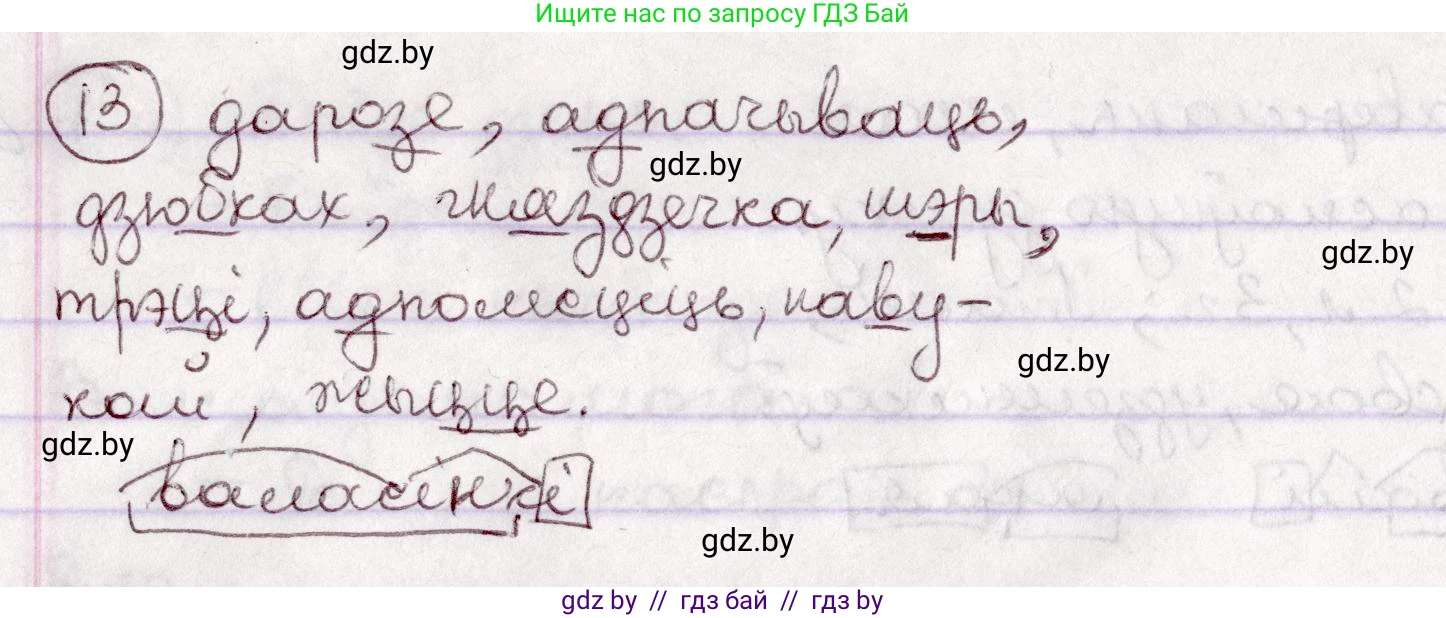 Ищите нас по запросу ГДЗ Бай
gdz.by
13 дарозе, адпачываць,
gdz.by
дзюбках, гназдзечка, шэры,
gdz.by
трэці, адпомсціць, наву-
gdz.by
кай, жыцце.
gdz.by
валасінкі
gdz.by
gdz by // гдз бай // гдз by